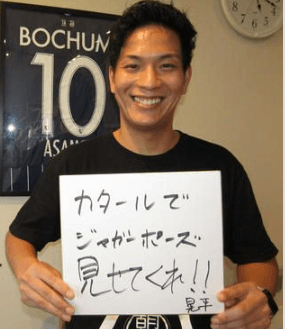 BOCHUM
10
ASANO
カタールで
ジャガーポーズ
見せてくれ!!
晃平